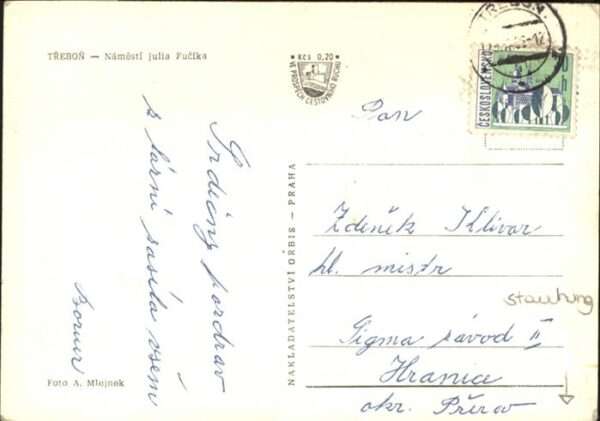 TŘEBOŇ — Náměstí Julia Fučíka
KČS 0,20
VE PROSPĚCH CESTOVNÍHO RUCHU
TŘEBOŇ
ČESKOSLOVENSKO
Srdečný pozdrav
z lázní zasílá všem
Foto A. Mlejnek
NAKLADATELSTVÍ ORBIS — PRAHA
Pan
Zdeněk Klivar
hl. mistr
Sigma závod II
Hranice
okr. Přerov